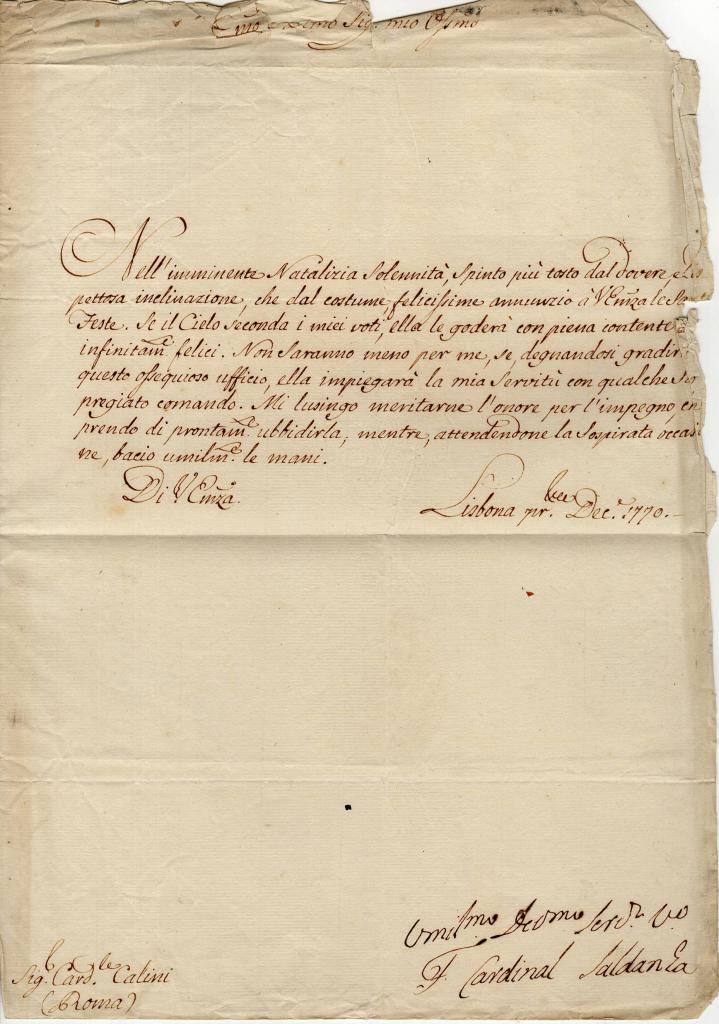 Em̃o e Rmo Sig. mio Ossmo
Nell'imminente Natalizia Solennità, spinto più tosto dal dovere,
pettosa inclinazione, che dal costume, felicissime annunzio à V. Em̃za le
Feste. Se il Cielo seconda i miei voti, ella le goderà con piena contente
infinitam̃. felici. Non saranno meno per me, se, degnandosi gradir
questo ossequioso ufficio, ella impiegarà la mia Servitù con qualche
pregiato comando. Mi lusingo meritarne l'onore per l'impegno,
prendo di prontam̃. ubbidirla, mentre, attendendone la sospirata occasi
ne, bacio umilm̃. le mani.
Di V. Em̃za.
Lisbona Dec. 1770.
Umilmo Devmo Serv. Vo
F. Cardinal Saldanha
Sig. Card.le Calini
(Roma)